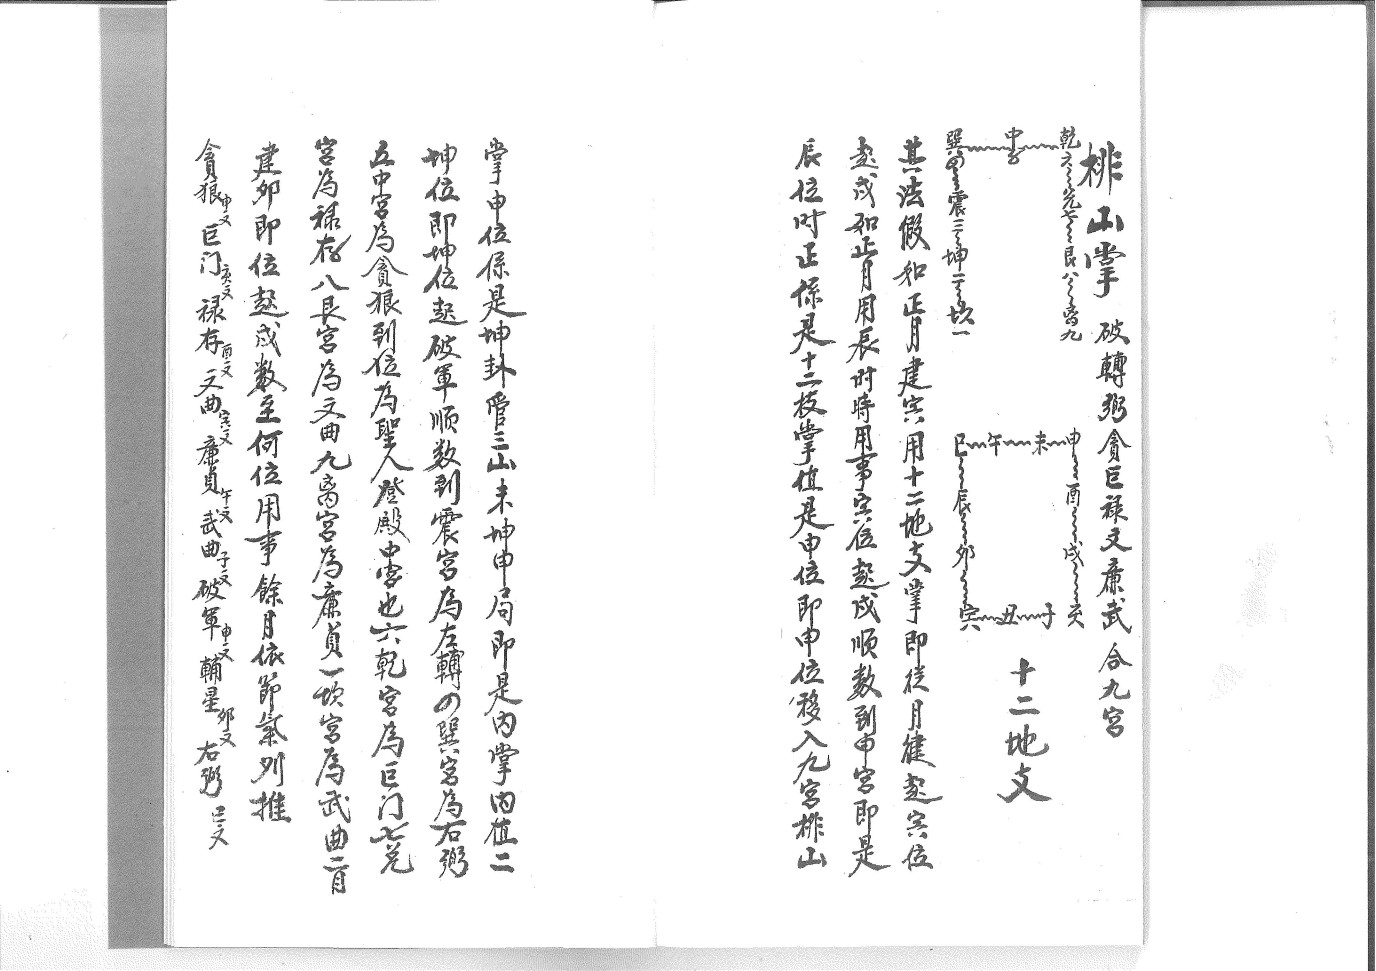 排山掌 破轉弼貪巨禄文廉武合九宫
乾六 兑七 艮八 离九
中五
巽四 震三 坤二 坎一
申 酉 戌 亥
未 午
巳 辰 卯 寅
丑 子
十二地支
其法假如正月建寅用十二地支掌即從月建起寅位
起戌如正月用辰时時用事寅位起戌顺数到申宫即是
辰位时正係是十二枝掌值是申位即申位移入九宫排山
掌申位係是坤卦管三山未坤申局即是内掌内值二
坤位即坤位起破軍顺数到震宫為左轉四巽宫為右弼
五中宫為貪狼到位為聖人登殿中宫也六乾宫為巨门七兑
宫為禄存八艮宫為文曲九离宫為廉貞一坎宫為武曲二月
建卯即位起戌数至何位用事餘月依節氣列推
貪狼申文 巨门亥文 禄存酉文 文曲寅文 廉貞午文 武曲子文 破軍申文 輔星卯文 右弼巳文